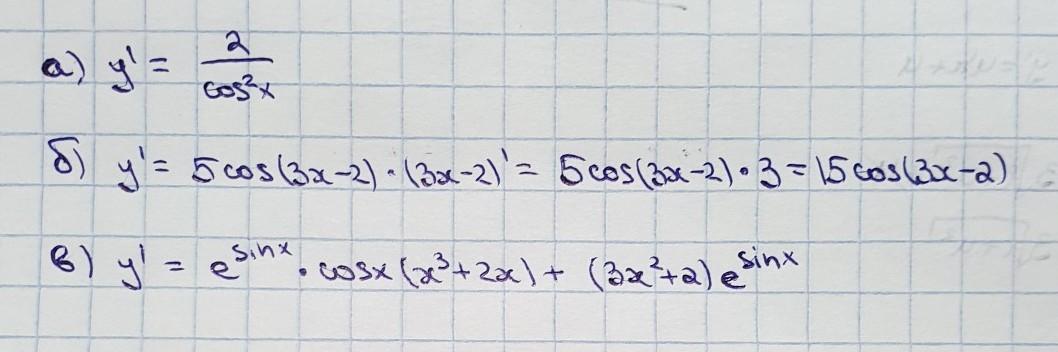 а) y' = 2/cos²x
б) y' = 5cos(3x-2)·(3x-2)' = 5cos(3x-2)·3 = 15cos(3x-2)
в) y' = e^sinx · cosx(x³+2x) + (3x²+2)e^sinx